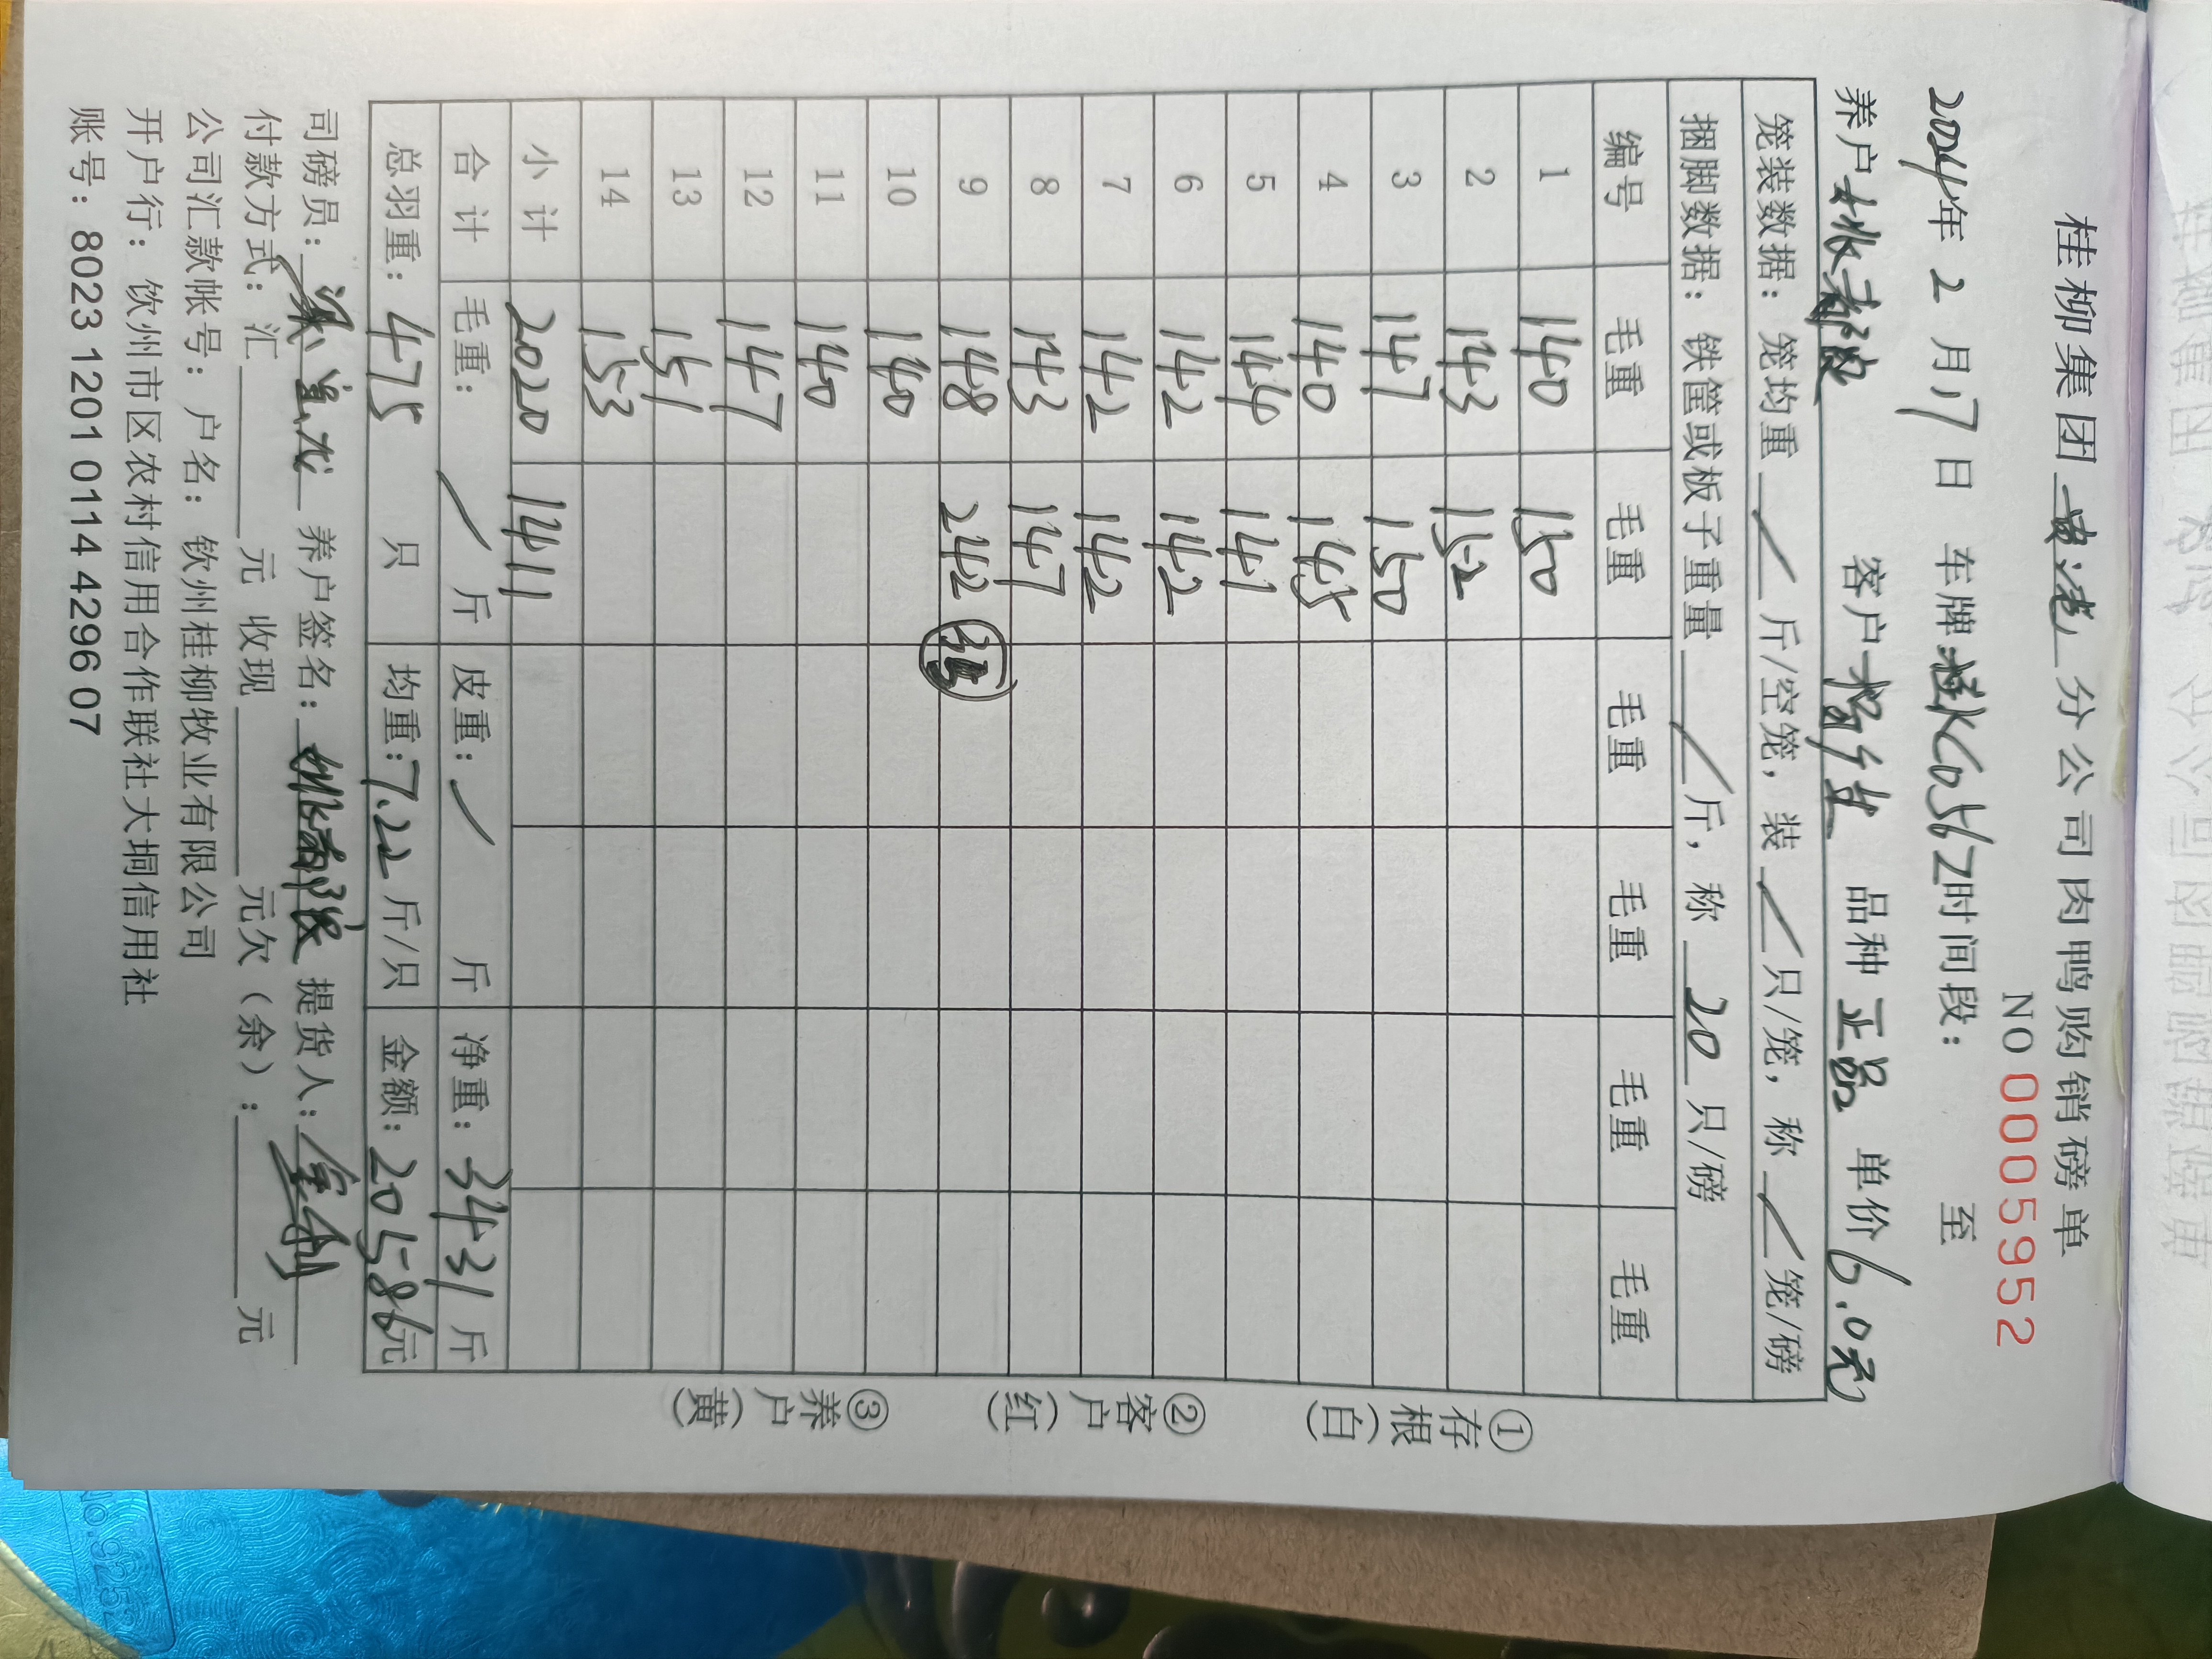 桂柳集团 贵港 分公司肉鸭购销磅单
NO 0005952
2024年 2 月 17 日 车牌:桂KC0562 时间段: 至
养户 客户 品种 正品 单价 6.0元
笼装数据:笼均重 / 斤/空笼,装 / 只/笼,称 / 笼/磅
捆脚数据:铁筐或板子重量 / 斤,称 20 只/磅
编号 毛重 毛重 毛重 毛重 毛重 毛重
1 140 150
2 143 152
3 147 150
4 140 145
5 144 141
6 142 142
7 142 142
8 143 147
9 148 242 35
10 140
11 140
12 147
13 151
14 153
小计 2020 1411
合计 毛重: / 斤 皮重: / 斤 净重: 3431 斤
总羽重: 475 只 均重: 7.22 斤/只 金额: 20586元
司磅员: 养户签名: 提货人:
付款方式:汇 元 收现 元欠(余): 元
公司汇款帐号:户名:钦州桂柳牧业有限公司
开户行:钦州市区农村信用合作联社大垌信用社
账号:8023 1201 0114 4296 07
①存根(白)
②客户(红)
③养户(黄)
No.9252